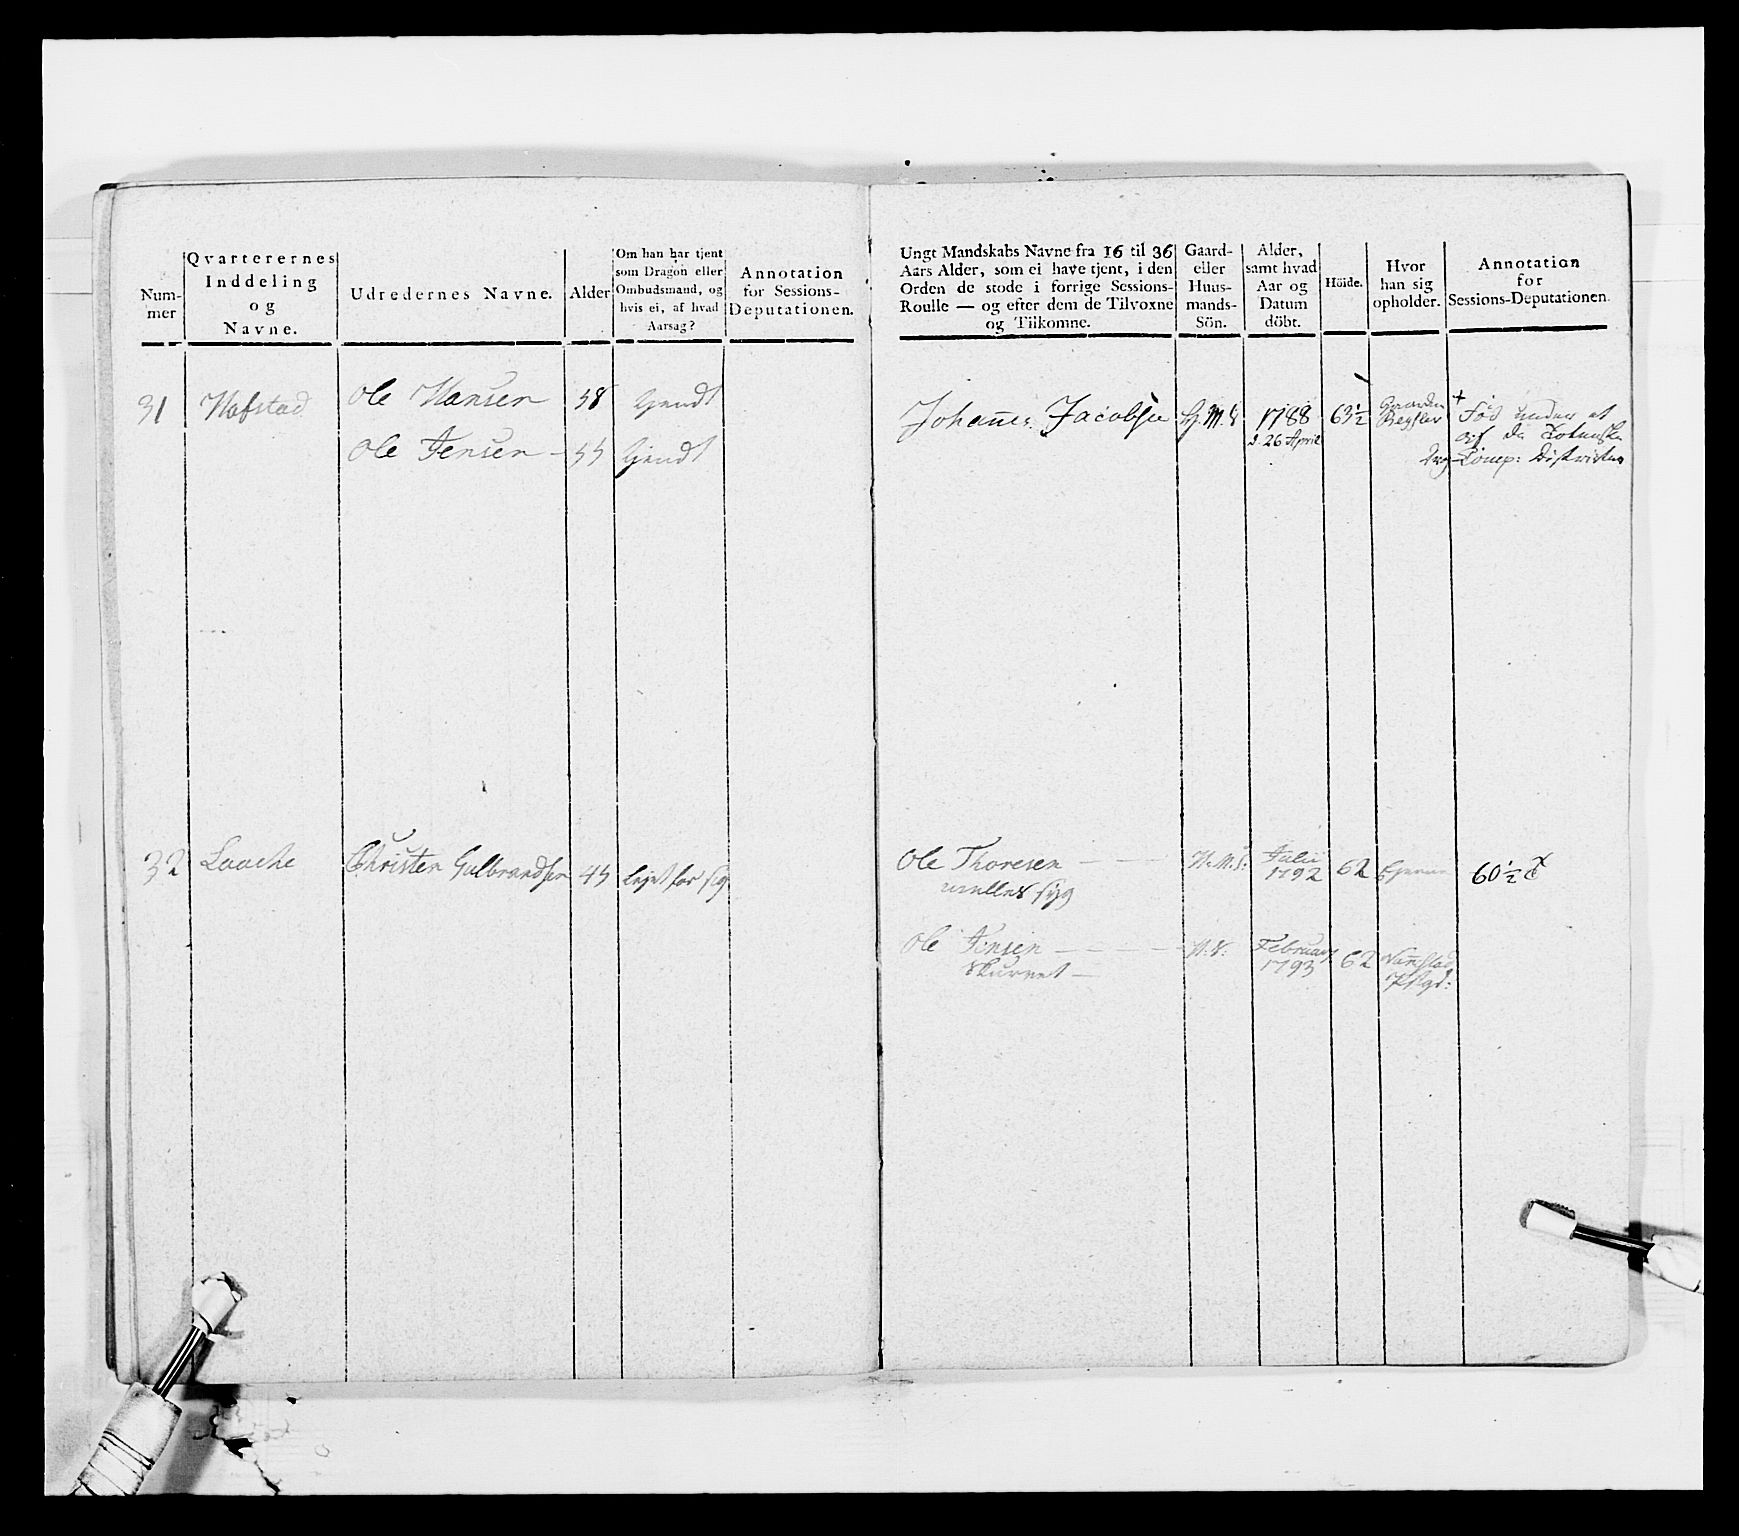 Num-
mer
Qvarterernes
Inddeling
og
Navne.
Udredernes Navne.
Alder
Om han har tjent
som Dragon eller
Ombudsmand, og
hvis ei, af hvad
Aarsag?
Annotation
for Sessions-
Deputationen.
31
Hafstad
Ole Hansen
58
tjendt
Ole Jensen -
55
tjendt
32
Laache
Christen Gulbrandsen
45
lejet for sig
Ungt Mandskabs Navne fra 16 til 36
Aars Alder, som ei have tjent, i den
Orden de stode i forrige Sessions-
Roulle — og efter dem de Tilvoxne
og Tilkomne.
Gaard-
eller
Huus-
mands-
Sön.
Alder,
samt hvad
Aar og
Datum
döbt.
Höide.
Hvor
han sig
opholder.
Annotation
for
Sessions-Deputationen.
Johannes Jacobsen
G. M. S
1788
d. 26 April
63½
Gaarden
+
Föd under et
af de
Drag- Comp: Distrikter
Ole Thoresen - - -
H. M. S:
Julii
1792
62
Hjemme
60½
syg
Ole Jensen - - - -
H: S:
Februar
1793
62
Skurvet -
Pstgd: